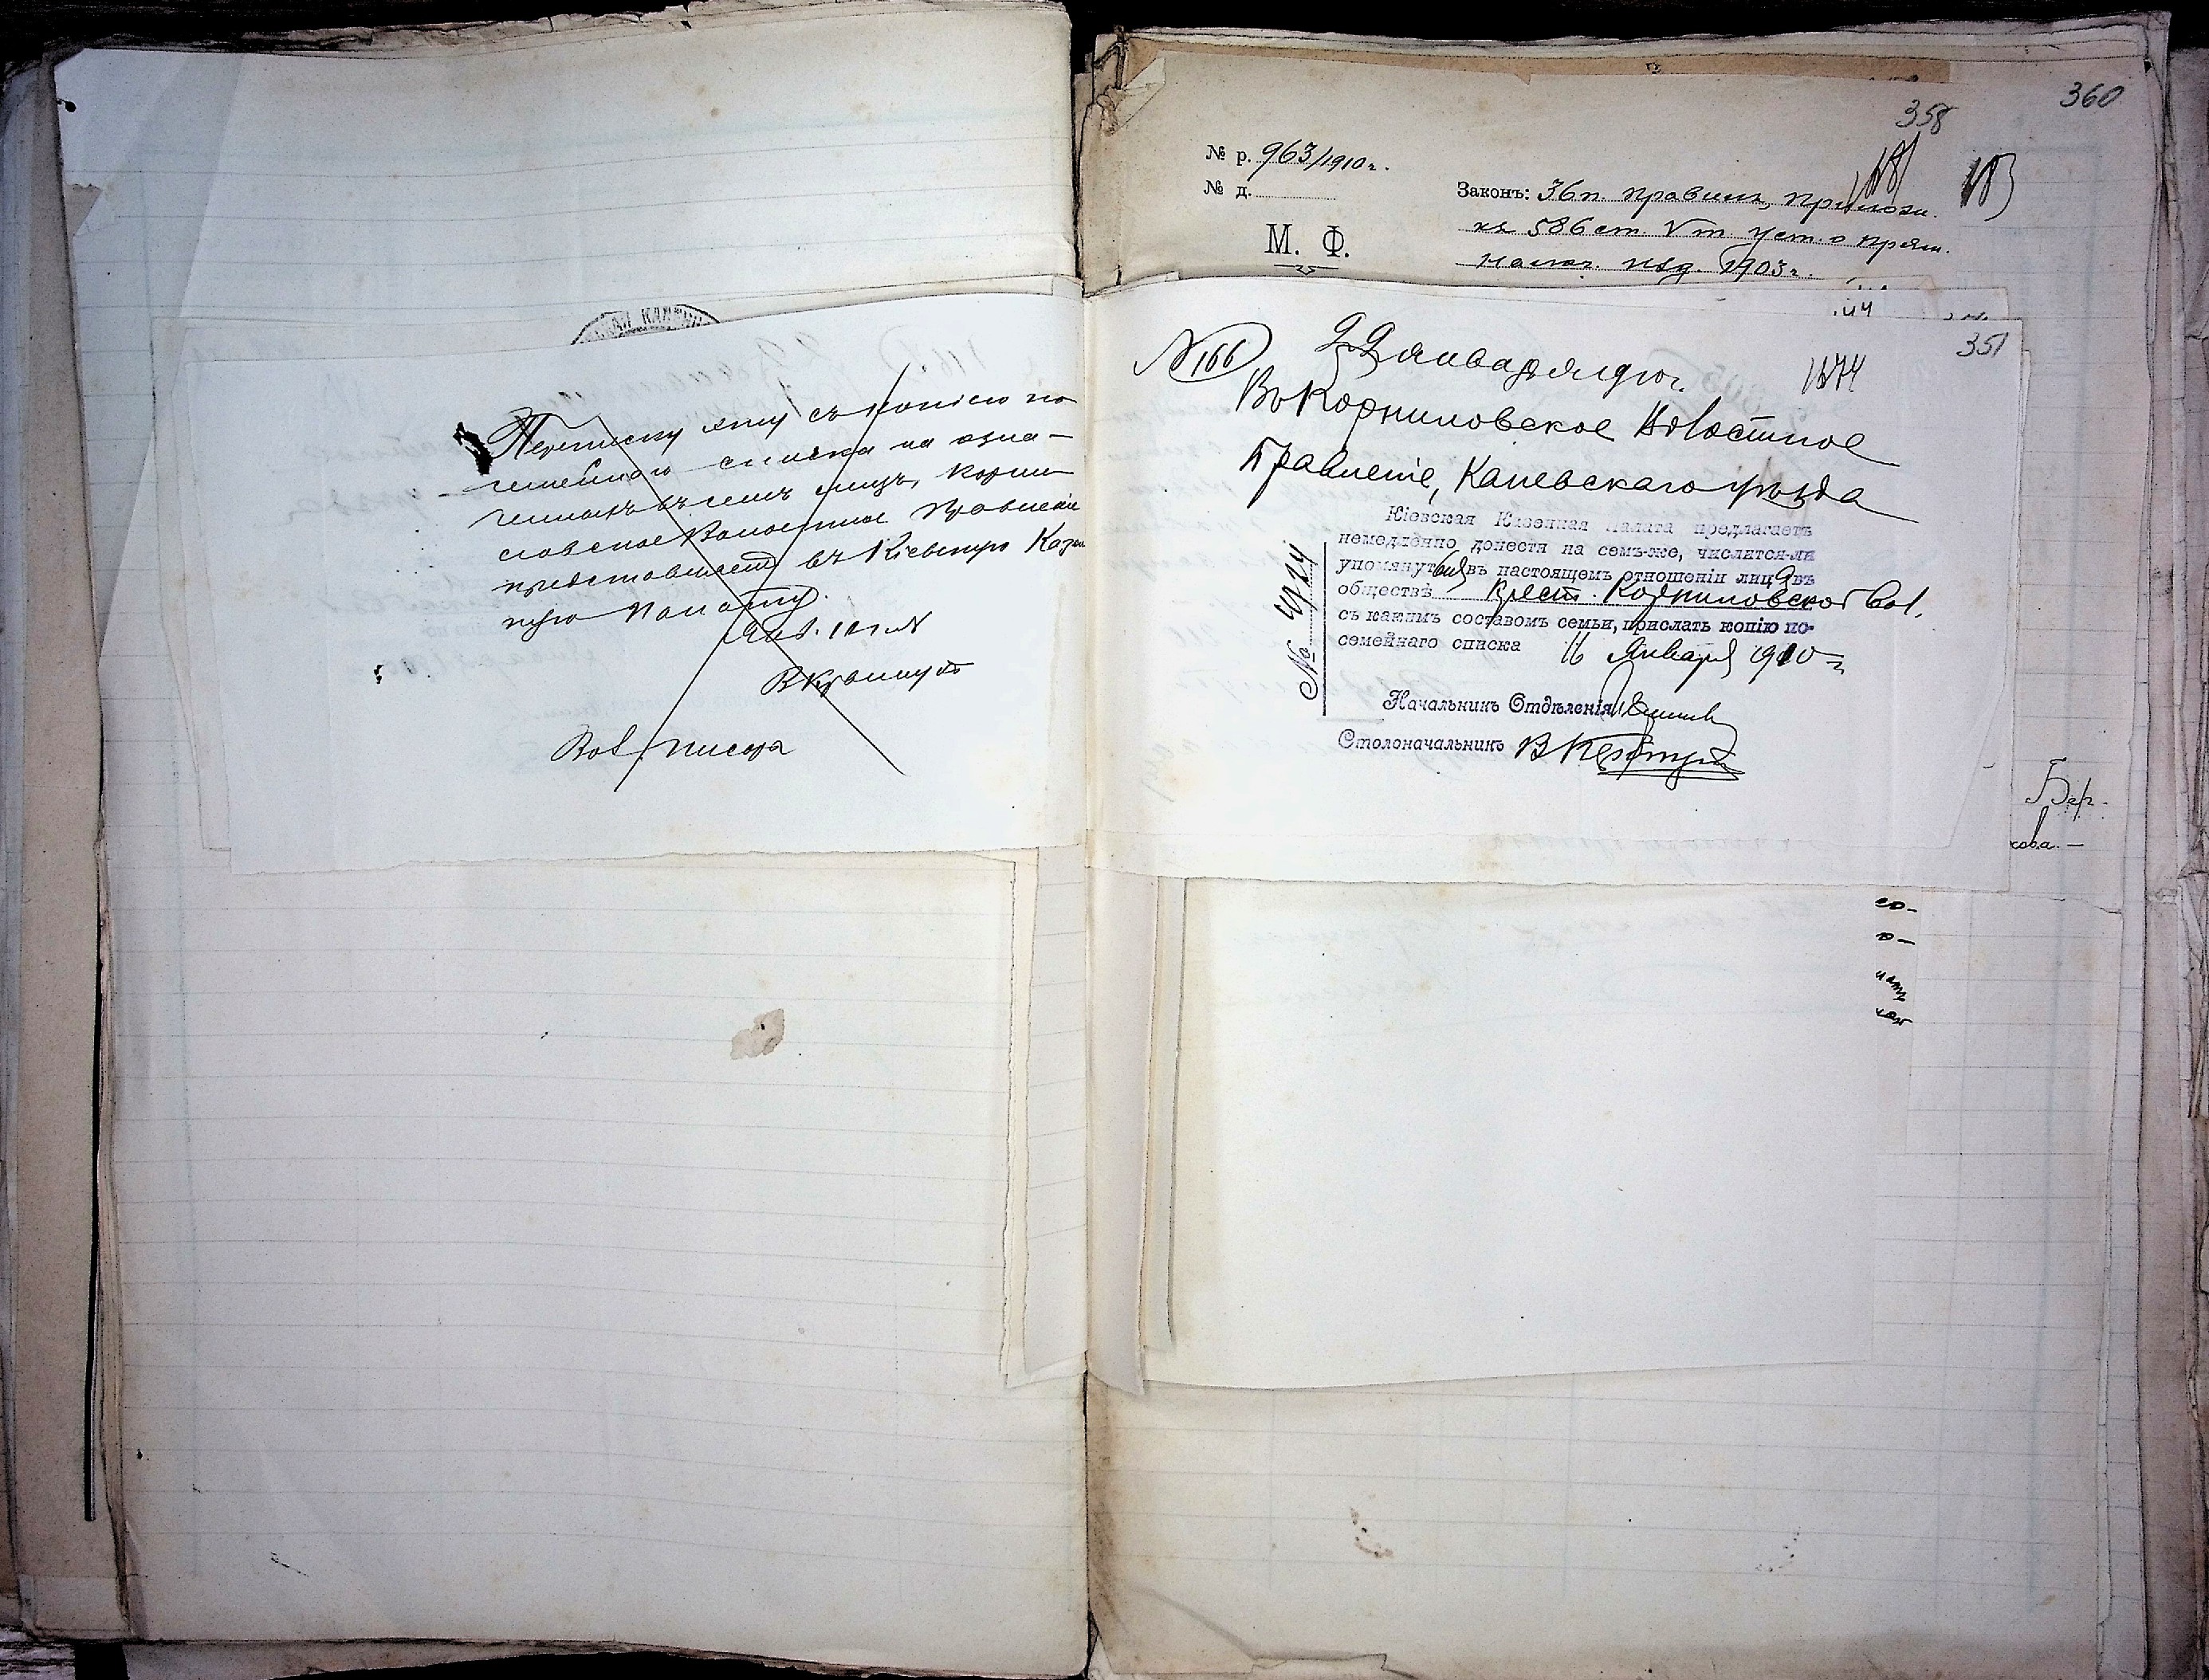 СКАЯ КАЗЕНН
Переписку эту съ копіею по
семейнаго списка на озна-
ченныхъ въ немъ лицъ, Корни
ловское Волостное Правленіе
представляетъ въ Кіевскую Казен
ную Палату.
Янв. 1910 г. №
Вол. писарь
360
358
№ р. 963/1910 г.
№ д.
Законъ: 36 п. правилъ, прилож.
къ 586 ст. V т. уст. о прям.
налог. изд. 1903 г.
М. Ф.
351
№ 166
22 января 910 г.
Въ Корниловское Волостное
Правленіе, Каневскаго уѣзда
Кіевская Казенная Палата предлагаетъ
немедленно донести на семъ-же, числится-ли
упомянутыя въ настоящемъ отношеніи лица въ
обществѣ крест. Корниловской вол.
съ какимъ составомъ семьи, прислать копію по-
семейнаго списка 16 Января 1910 г.
№ 4724
Начальникъ Отдѣленія
Столоначальникъ
Бер.
кова. —
со-
о-